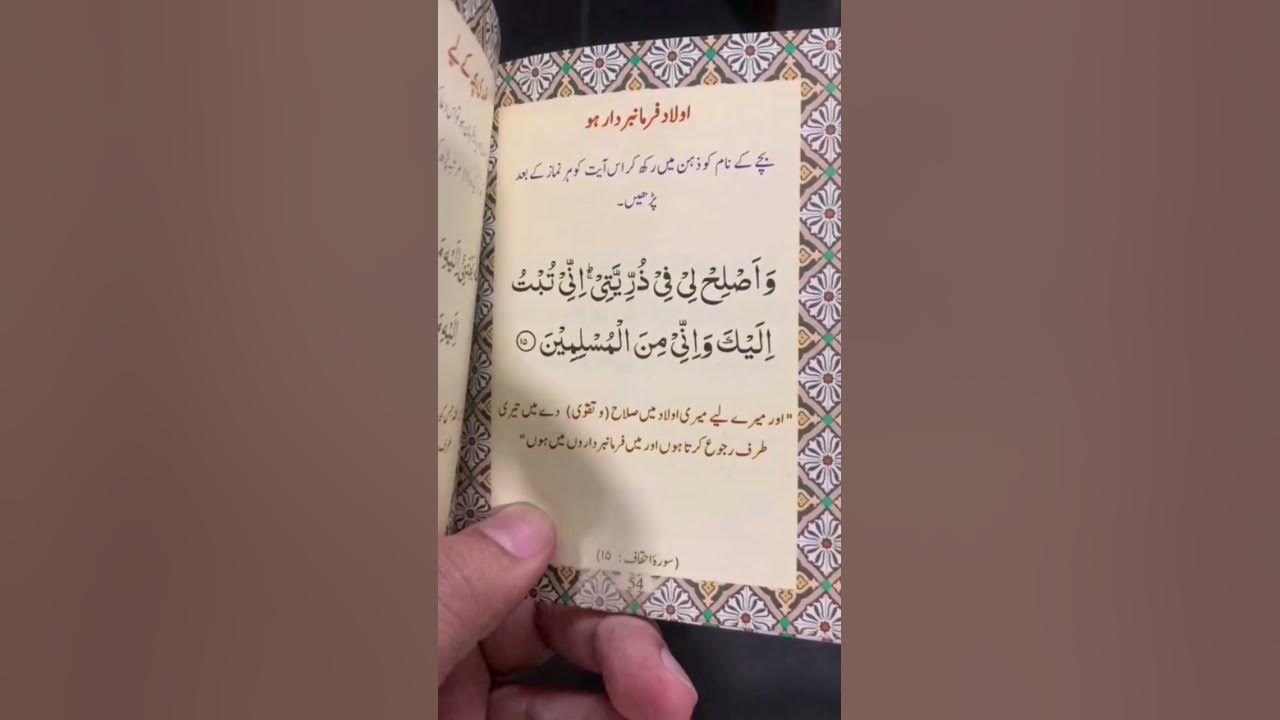 اولاد فرمانبردار ہو
بچے کے نام کو ذہن میں رکھ کر اس آیت کو ہر نماز کے بعد
پڑھیں۔
وَاَصْلِحْ لِیْ فِیْ ذُرِّیَّتِیْ ۚؕ اِنِّیْ تُبْتُ
اِلَیْكَ وَاِنِّیْ مِنَ الْمُسْلِمِیْنَ ۝۱۵
"اور میرے لیے میری اولاد میں صلاح (و تقوی) دے میں تیری
طرف رجوع کرتا ہوں اور میں فرمانبرداروں میں ہوں"
(سورۂ احقاف : ۱۵)
54